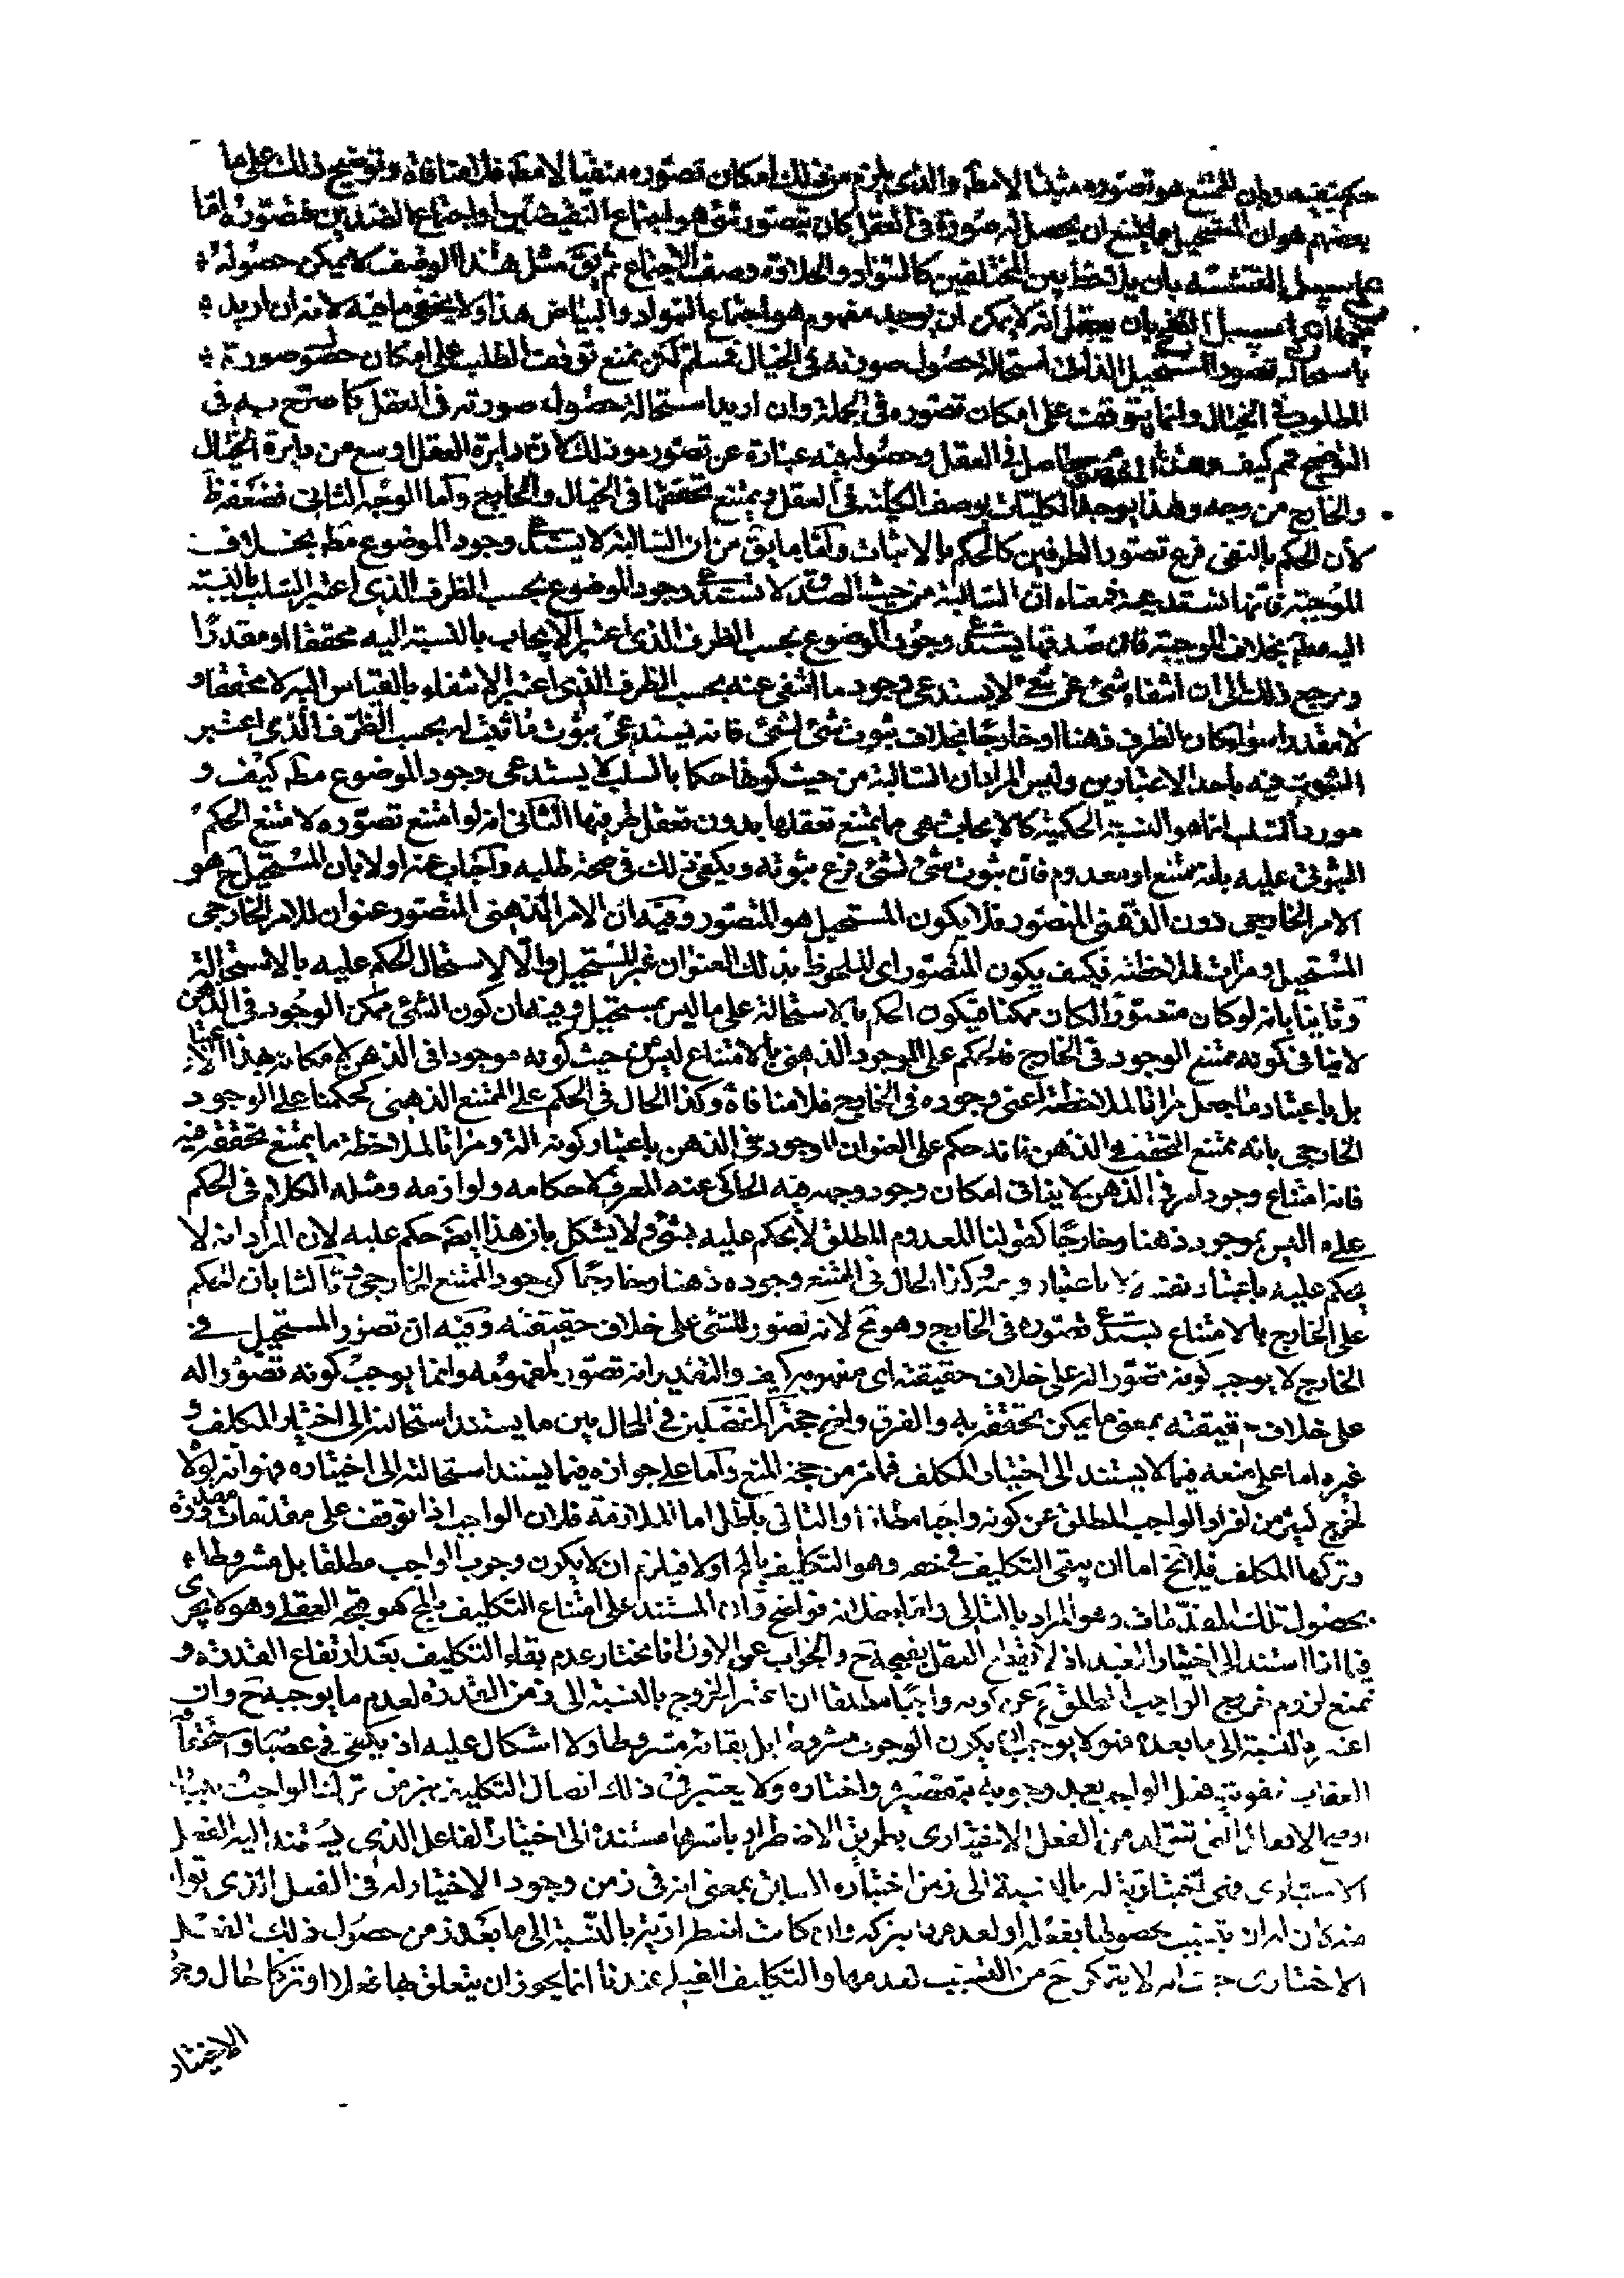 حكم بنفيه وبان الممتنع هو تصوره مثبتا لا مطم والذى يلزم من ذلك امكان تصوره منفيا لا مطم فلا منافاة وتوضيح ذلك على ما
بعضهم هو ان المستحيل مما يمتنع ان يحصل له صورة فى العقل كان يتصور شئ هو اجتماع النقيضين او اجتماع الضدين فتصوره اما
على سبيل التشبيه بان يلاحظ بين المختلفين كالسواد والحلاوة وصف الاجتماع ثم يق مثل هذا الوصف لا يمكن حصوله
على سبيل النفى بان يعقل انه لا يمكن ان يوجد مفهوم هو اجتماع السواد والبياض هذا ولا يخفى ما فيه لانه ان اريد
باستحالة تصور المستحيل الذاتى استحالة حصول صورته فى الخيال فمسلم لكن نمنع توقف الطلب على امكان حضور صورة
المطلوب فى الخيال وانما يتوقف على امكان تصوره فى الجملة وان اريد استحالة حصول صورته فى العقل كما صرح به فى
التوضيح فمم كيف وهذا حاصل فى العقل وحصوله فيه عبارة عن تصوره وذلك لان دايرة العقل اوسع من دايرة الخيال
والخارج من وجه ولهذا يوجد الكليات بوصف الكلية فى العقل ويمتنع تحققها فى الخيال والخارج واما الوجه الثانى فضعفه ظ
لان الحكم بالنفى فرع تصور الطرفين كالحكم بالاثبات واما ما يق من ان السالبة لا يستدعى وجود الموضوع مطم بخلاف
الموجبة فانها تستدعيه فمعناه ان السالبة من حيث الصدق لا تستدعى وجود الموضوع بحسب الظرف الذى اعتبر السلب بالنسبة
اليه مطم بخلاف الموجبة فان صدقها يستدعى وجود الموضوع بحسب الظرف الذى اعتبر الايجاب بالنسبة اليه محققا او مقدرا
ومرجع ذلك الى ان انتفاء شئ عن شئ لا يستدعى وجود ما انتفى عنه بحسب الظرف الذى اعتبر الانتفاء بالقياس اليه لا محققا و
لا مقدرا سواء كان الظرف ذهنا او خارجا بخلاف ثبوت شئ لشئ فانه يستدعى ثبوت ما ثبت له بحسب الظرف الذى اعتبر
الثبوت فيه باحد الاعتبارين وليس المراد ان السالبة من حيث كونها حكما بالسلب لا يستدعى وجود الموضوع مطم كيف و
مورد السلب انما هو النسبة الحكمية كالايجاب هى مما يمتنع تعقلها بدون تعقل طرفيها الثانى انه لو امتنع تصوره لامتنع الحكم
الثبوتى عليه بانه ممتنع او معدوم فان ثبوت شئ لشئ فرع ثبوته ويكفى ذلك فى صحة طلبه واجاب عنه اولا بان المستحيل ح هو
الامر الخارجى دون الذهنى المتصور فلا يكون المستحيل هو المتصور وفيه ان الامر الذهنى المتصور عنوان للامر الخارجى
المستحيل ومرات لملاحظته فكيف يكون المتصور اى الملحوظ بذلك العنوان غير المستحيل والا لاستحال الحكم عليه بالاستحالة
وثانيا بانه لو كان متصورا لكان ممكنا فيكون الحكم بالاستحالة على ما ليس بمستحيل وفيه ان كون الشئ ممكن الوجود فى الذهن
لا ينافى كونه ممتنع الوجود فى الخارج فالحكم على الموجود الذهنى بالامتناع ليس من حيث كونه موجودا فى الذهن لامكانه بهذا الاعتبار
بل باعتبار ما جعل مراتا لملاحظته اعنى وجوده فى الخارج فلا منافاة وكذا الحال فى الحكم على الممتنع الذهنى كحكمنا على الوجود
الخارجى بانه ممتنع التحقق فى الذهن فانه حكم على العنوان الموجود فى الذهن باعتبار كونه الة ومراتا لملاحظة ما يمتنع تحققه فيه
فانه امتناع وجود امر فى الذهن لا ينافى امكان وجود وجهه فيه الحاكى عنه المعرف لاحكامه ولوازمه ومثله الكلام فى الحكم
على ما ليس بموجود ذهنا وخارجا كقولنا المعدوم المطلق لا يحكم عليه بشئ ولا يشكل بان هذا ايضم حكم عليه لان المراد انه لا
يحكم عليه باعتبار نفسه لا باعتبار وجهه وكذا الحال فى الممتنع وجوده ذهنا وخارجا كوجود الممتنع الخارجى وثالثا بان الحكم
على الخارج بالامتناع يستدعى تصوره فى الخارج وهو مح لانه تصور للشئ على خلاف حقيقته وفيه ان تصور المستحيل فى
الخارج لا يوجب كونه تصورا له على خلاف حقيقته اى مفهومه كيف والتقدير انه تصور لمفهومه وانما يوجب كونه تصورا له
على خلاف حقيقته بمعنى ما يمكن تحققه به والفرق واضح حجة المفصلين فى المحال بين ما يستند استحالته الى اختيار المكلف و
غيره اما على منعه فيما لا يستند الى اختيار المكلف فما مر من حجة المنع واما على جوازه فيما يستند استحالته الى اختياره فهو انه لولا
لخرج كثير من افراد الواجب المطلق عن كونه واجبا مطلقا والتالى باطل اما الملازمة فلان الواجب اذا توقف على مقدمات مقدورة
وتركها المكلف فلا يخ اما ان يبقى التكليف فى حقه وهو التكليف بالمح او لا فيلزم ان لا يكون وجوب الواجب مطلقا بل مشروطا
بحصول تلك المقدمات وهو المراد بالتالى واما بطلانه فواضح ولان المستند على امتناع التكليف بالمح هو قبحه العقلى وهو لا يجرى
فيما اذا استند الى اختيار العبد اذ لا يقطع العقل بقبحه ح والجواب عن الاول انا نختار عدم بقاء التكليف بعد ارتفاع القدرة و
نمنع لزوم خروج الواجب المطلق ح عن كونه واجبا مطلقا ان اعتبر الخروج بالنسبة الى زمن القدرة لعدم ما يوجبه ح وان
اعتبر بالنسبة الى ما بعده فهو لا يوجب ان يكون الوجوب مشروطا بل بقائه مشروطا ولا اشكال عليه اذ يكفى فى عصيانه واستحقاق
العقاب تفويته فعل الواجب بعد وجوبه بتقصيره واختياره ولا يعتبر فى ذلك اتصال التكليف بزمن ترك الواجب
وجميع الافعال التى تتولد من الفعل الاختيارى بطريق الاضطرار باسرها مستندة الى اختيار الفاعل الذى يستند اليه الفعل
الاختيارى فهى اختيارية له بالنسبة الى زمن اختياره السابق بمعنى انه فى زمن وجود الاختيار له فى الفعل الذى تولد
منه كان له ان يتسبب بحصولها بفعله او لعدمها بتركه وان كانت اضطرارية بالنسبة الى ما بعد زمن حصول ذلك الفعل
الاختيارى حيث انه لا يتمكن ح من التسبب لعدمها والتكليف الفعلى عندنا انما يجوز ان يتعلق بها فعلا او تركا حال وجو
الاختيار